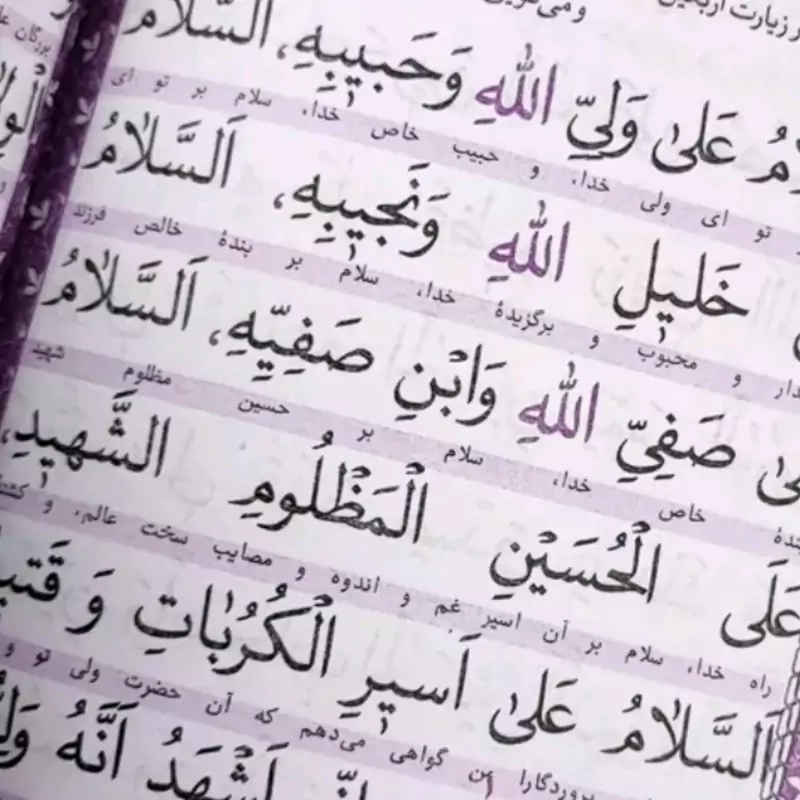 ر زیارت اربعین
و می‌خوانی
عَلیٰ وَلِیِّ اللّٰهِ وَحَبیبِهِ، اَلسَّلامُ
تو ای ولی خدا، و حبیب خاص خدا، سلام بر تو ای
خَلیلِ اللّٰهِ وَنَجیبِهِ، اَلسَّلامُ
و محبوب و برگزیدهٔ خدا، سلام بر بندهٔ خالص فرزند
صَفِیِّ اللّٰهِ وَابْنِ صَفِیِّهِ، اَلسَّلامُ
بندهٔ خاص خدا، سلام بر حسین مظلوم شهید
عَلَی الْحُسَیْنِ الْمَظْلُومِ الشَّهیدِ،
راه خدا، سلام بر آن اسیر غم و اندوه و مصایب سخت عالم، و
اَلسَّلامُ عَلیٰ اَسیرِ الْکُرُباتِ وَ
پروردگارا من گواهی می‌دهم که آن حضرت ولی تو و
اَشْهَدُ اَنَّهُ